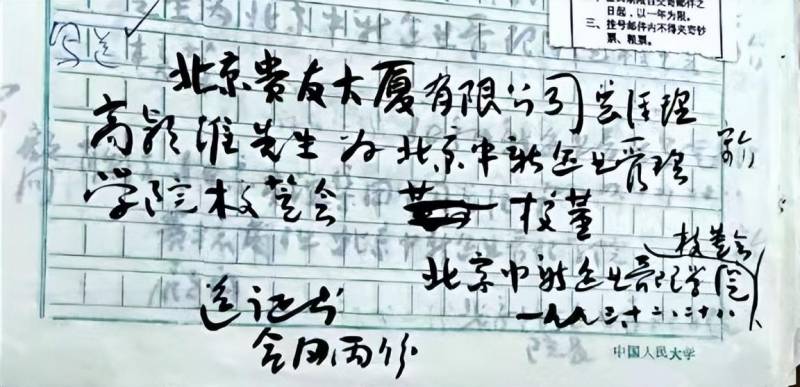 日起,以一年为限。
三、挂号邮件内不得夹寄钞
票、粮票。
写送
北京贵友大厦有限公司总经理
高颖维先生为北京中新企业管理
学院校董会 校董
校董会
北京中新企业管理学院
一九九三.十二.二十八
送证书
合同两份
中国人民大学